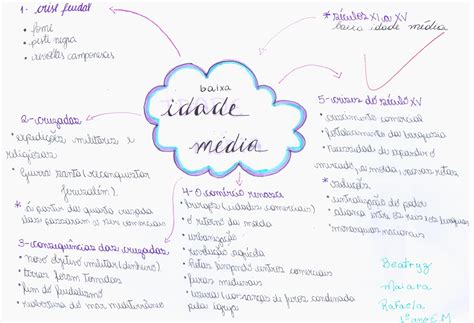 1- crise feudal
• fome
• peste negra
• revoltas camponesas
* séculos XI a XV
baixa idade média
baixa
idade
média
2- cruzadas
• expedições militares e
religiosas
• Guerra santa (reconquistar
Jerusalém).
* a partir da quarta cruzada
elas passaram a ser comerciais
3- consequências das cruzadas
• novo objetivo militar (dinheiro)
• terras foram tomadas
• fim do feudalismo
• reabertura do mar mediterrâneo
4- O comércio renasce
• burgos (cidades comerciais)
• o retorno da moeda
• urbanização
• revolução agrícola
• rotas ligando centros comerciais
• feiras medievais
• usura (cobranças de juros) condenada
pela igreja
5- crises do século XV
• crescimento comercial
• fortalecimento da burguesia
• necessidade de expandir o
mercado, a moeda, novas rotas
* soluções
• centralização do poder
• aliança entre os reis e os burgueses
• monarquias nacionais
Beatryz
Maiara
Rafaela
1º ano E.M